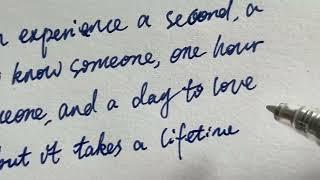 experience a second, a
know someone, one hour
eone, and a day to love
but it takes a lifetime